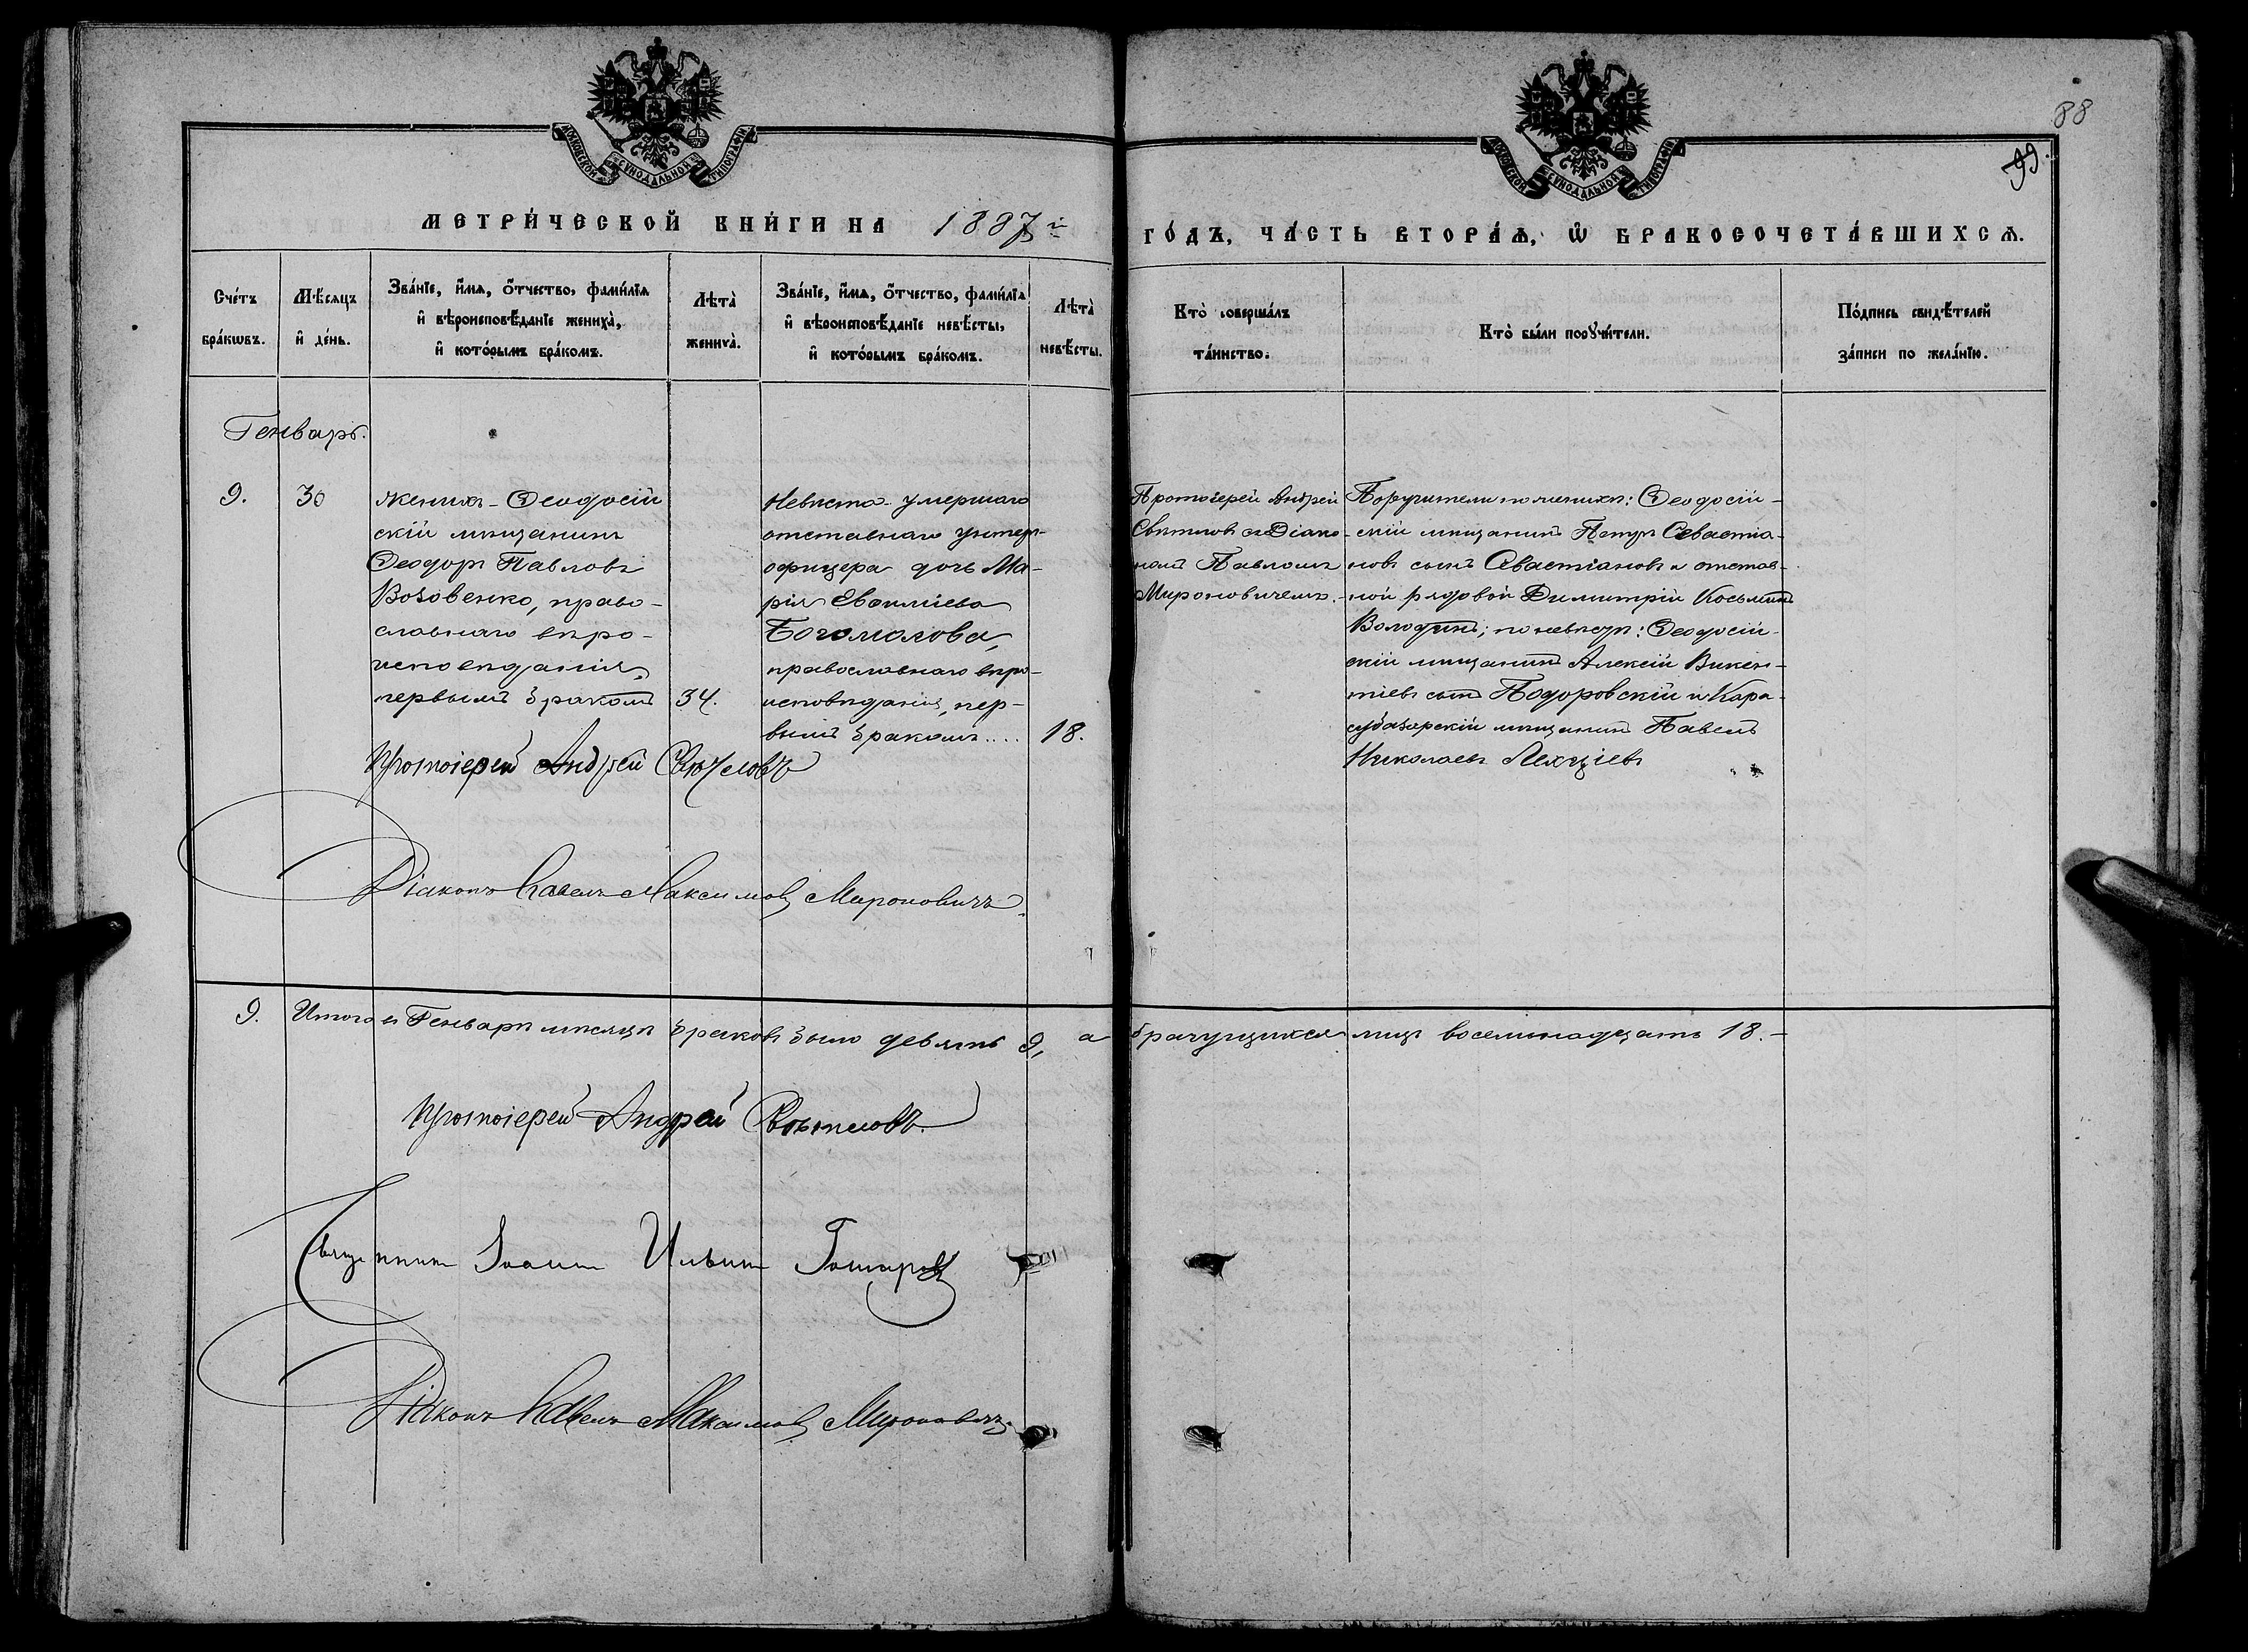 МОСКОВСКОЙ СѴНОДАЛЬНОЙ ТИПОГРАФІИ
МОСКОВСКОЙ СѴНОДАЛЬНОЙ ТИПОГРАФІИ
88
99.
МЕТРИ́ЧЕСКОЙ КНИ́ГИ НА 1887 й
ГО́ДЪ, ЧА́СТЬ ВТОРА́Ѧ, Ѡ҆ БРАКОСОЧЕТА́ВШИХСѦ.
Сче́тъ
бра́кѡвъ.
Мѣ́сѧцъ
и҆ де́нь.
Зва́нїе, и҆́мѧ, ѻ҆́тчество, фами́лїѧ
и҆ вѣроисповѣ́данїе жениха̀,
и҆ кото́рымъ бра́комъ.
Лѣта̀
жениха̀.
Зва́нїе, и҆́мѧ, ѻ҆́тчество, фами́лїѧ
и҆ вѣроисповѣ́данїе невѣ́сты,
и҆ кото́рымъ бра́комъ.
Лѣта̀
невѣ́сты.
Кто̀ соверша́лъ
та́инство.
Кто̀ бы́ли порꙋчи́тели.
По́дпись свидѣ́телей
за́писи по жела́нїю.
Генварь.
9.
30
Женихъ - Ѳеодосій
скій мѣщанинъ
Ѳеодоръ Павловъ
Возовенко, право-
славнаго вѣро-
исповѣданія,
первымъ бракомъ
34.
Невѣста - умершаго
отставнаго унтеръ-
офицера дочь Ма-
рія Евѳиміева
Богомолова,
православнаго вѣро-
исповѣданія, пер-
вымъ бракомъ....
18.
Протоіерей Андрей
Свѣтловъ съ Діако-
номъ Павломъ
Мироновичемъ.
Поручители по женихѣ: Ѳеодосій-
скій мѣщанинъ Петръ Севастіа-
новъ сынъ Севастіановъ и отстав-
ной рядовой Димитрій Косьминъ
Володинъ; по невѣстѣ: Ѳеодосій-
скій мѣщанинъ Алексій Викен-
тіевъ сынъ Подоровскій и Кара-
субазарскій мѣщанинъ Павелъ
Николаевъ
Протоіерей Андрей Свѣтловъ
Діаконъ Павелъ Максимовъ Мироновичъ
9.
Итого въ Генварѣ мѣсяцѣ браковъ было девять 9, а брачущихся лицъ восемнадцать 18.-
Протоіерей Андрей Свѣтловъ.
Священникъ Іоаннъ Ильинъ
Діаконъ Павелъ Максимовъ Мироновичъ.